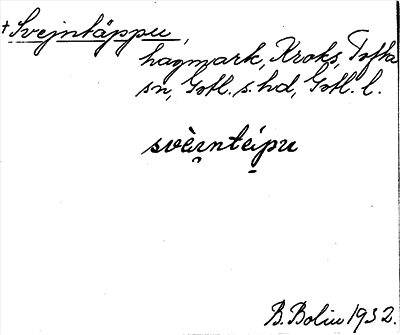 + Svejntäppu,
hagmark, Kroks, Tofta
sn, Gotl. s. hd, Gotl. l.
svèi̯ntépu
B. Bolin 1932.